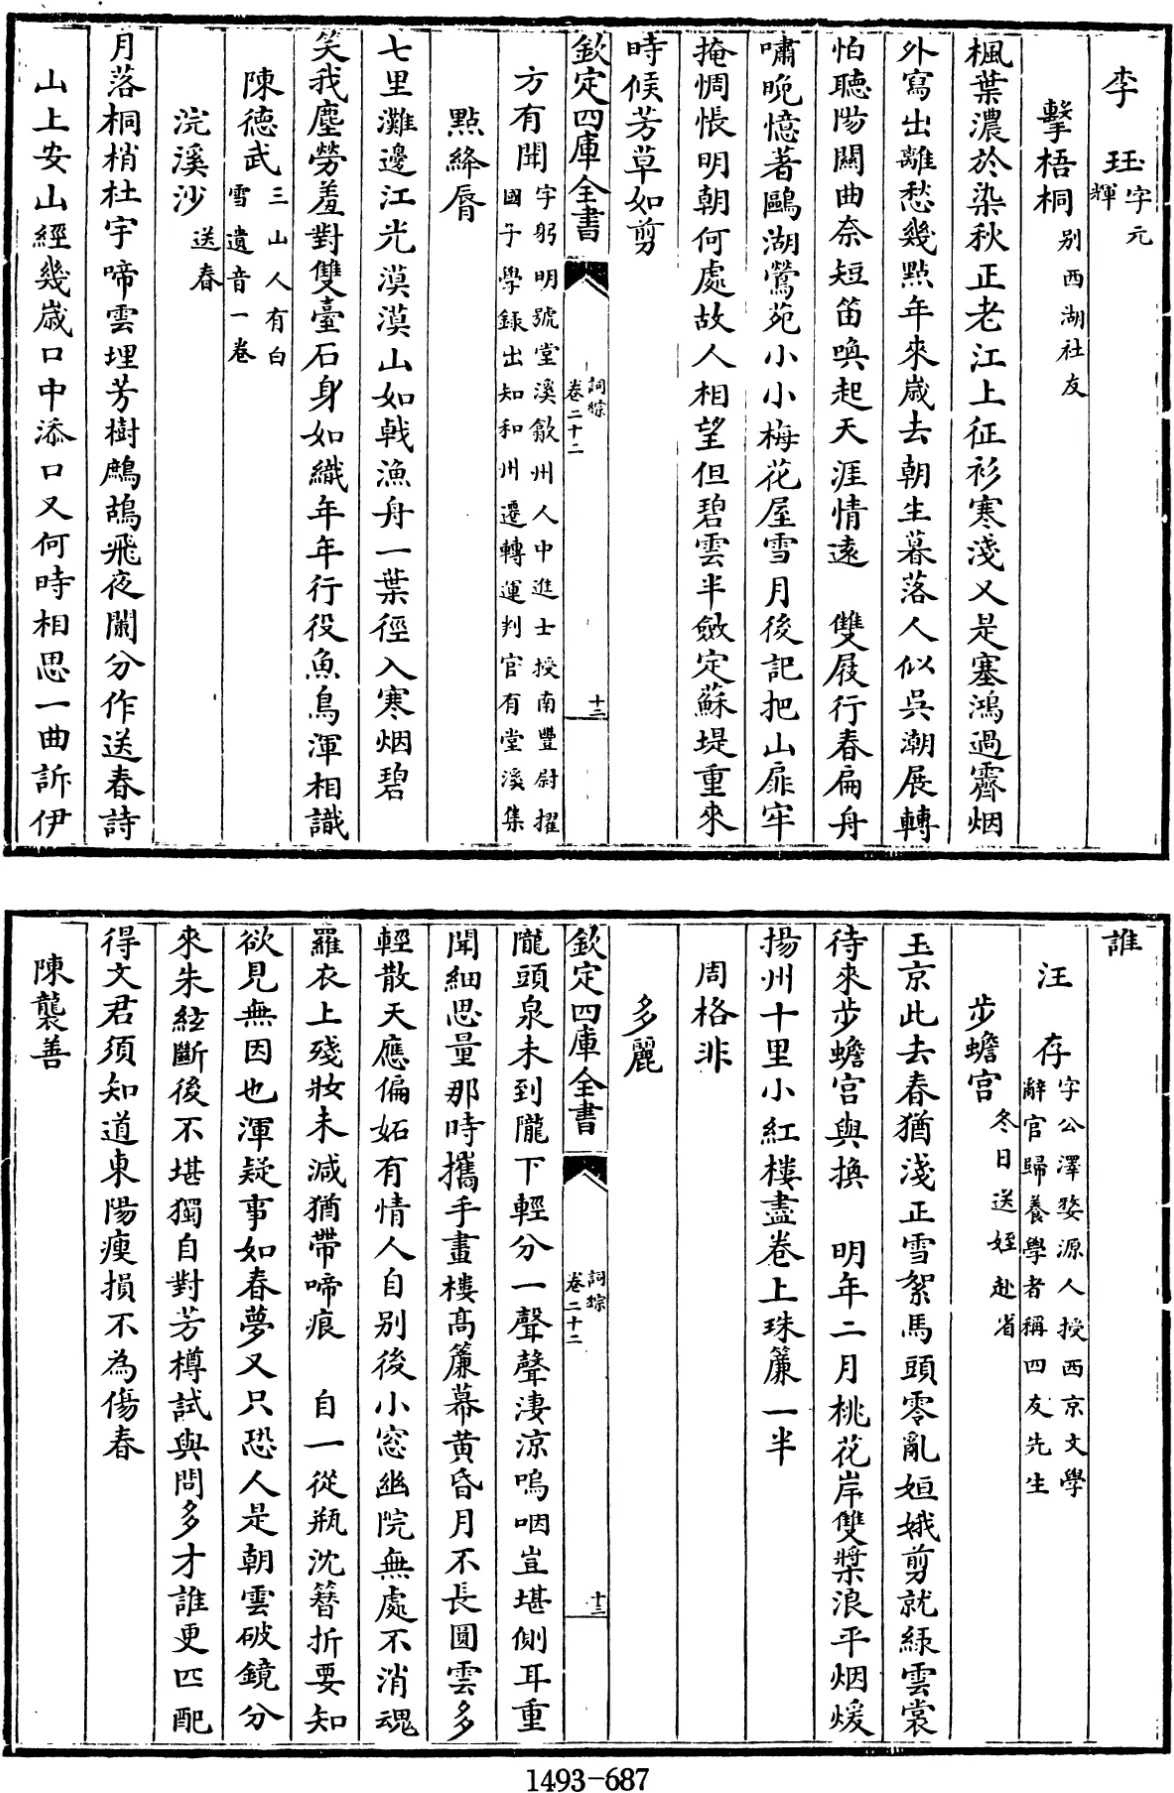 李珏字元輝
擊梧桐别西湖社友
楓葉濃於染秋正老江上征衫寒淺又是塞鴻過霽烟
外寫出離愁幾點年來歲去朝生暮落人似吳潮展轉
怕聽陽關曲奈短笛喚起天涯情遠　雙屐行春扁舟
嘯晚憶著鷗湖鶯苑小小梅花屋雪月後記把山扉牢
掩惆悵明朝何處故人相望但碧雲半斂定蘇堤重來
時候芳草如剪
欽定四庫全書
詞綜
卷二十二
十二
方有開字躬明號堂溪歙州人中進士授南豐尉擢
國子學録出知和州遷轉運判官有堂溪集
點絳脣
七里灘邊江光漠漠山如戟漁舟一葉徑入寒烟碧
笑我塵勞羞對雙臺石身如織年年行役魚鳥渾相識
陳德武三山人有白
雪遺音一卷
浣溪沙送春
月落桐梢杜宇啼雲埋芳樹鷓鴣飛夜闌分作送春詩
山上安山經幾歲口中添口又何時相思一曲訴伊
誰
汪存字公澤婺源人授西京文學
辭官歸養學者稱四友先生
步蟾宫冬日送姪赴省
玉京此去春猶淺正雪絮馬頭零亂姮娥剪就緑雲裳
待來步蟾宫與換　明年二月桃花岸雙槳浪平烟煖
揚州十里小紅樓盡卷上珠簾一半
周格非
多麗
欽定四庫全書
詞綜
卷二十二
十三
隴頭泉未到隴下輕分一聲聲淒涼嗚咽豈堪側耳重
聞細思量那時攜手畫樓髙簾幕黄昏月不長圓雲多
輕散天應偏妬有情人自别後小窓幽院無處不消魂
羅衣上殘妝未減猶帶啼痕　自一從瓶沈簪折要知
欲見無因也渾疑事如春夢又只恐人是朝雲破鏡分
來朱絃斷後不堪獨自對芳樽試與問多才誰更匹配
得文君須知道東陽瘦損不為傷春
陳襲善
1493-687